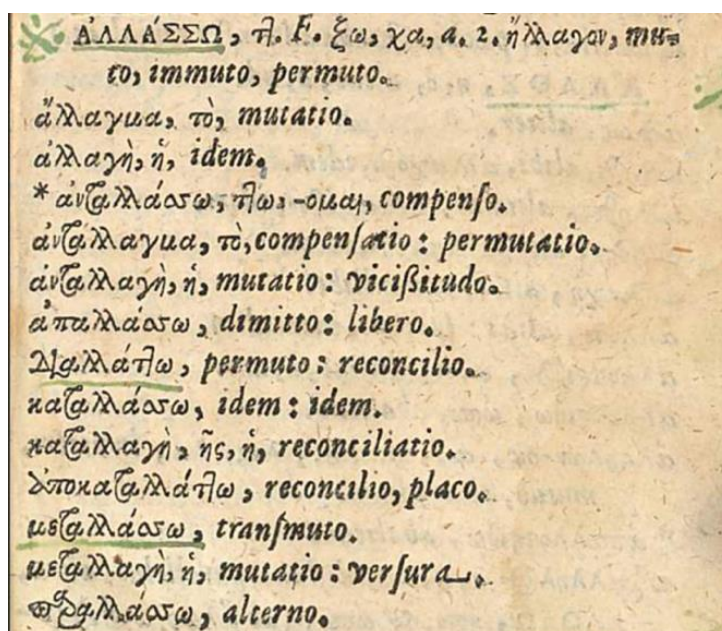 ἈΛΛΆΣΣΩ, τλ. F. ξω, χα, a. 2. ἤλλαγον, mu-
to, immuto, permuto.
ἄλλαγμα, τὸ, mutatio.
ἀλλαγὴ, ἡ, idem.
* ἀνταλλάσσω, τλω, -ομαι, compenſo.
ἀντάλλαγμα, τὸ, compenſatio: permutatio.
ἀνταλλαγὴ, ἡ, mutatio: viciſsitudo.
ἀπαλλάσσω, dimitto: libero.
Διαλλάτλω, permuto: reconcilio.
καταλλάσσω, idem: idem.
καταλλαγὴ, ῆς, ἡ, reconciliatio.
ἀποκαταλλάτλω, reconcilio, placo.
μεταλλάσσω, tranſmuto.
μεταλλαγὴ, ἡ, mutatio: verſura.
παραλλάσσω, alterno.